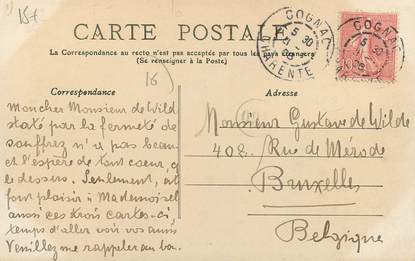 15t
CARTE POSTALE
La Correspondance au recto n'est pas acceptée par tous les pays étrangers
(Se renseigner à la Poste)
COGNAC
CHARENTE
COGNAC
16)
Correspondance
Adresse
Moncher Monsieur de Wild
staté par la fermeté de
souffrez n'a pas beau
et l'espère de tout coeur, q
le dessins. Seulement, et
font plaisir à Mademoisel
aussi ces trois cartes-ci,
temps d'aller voir vos amis
Veuillez me rappeler au bo
Monsieur Gustave de Wilde
402, Rue de Mérode
Bruxelles
Belgique